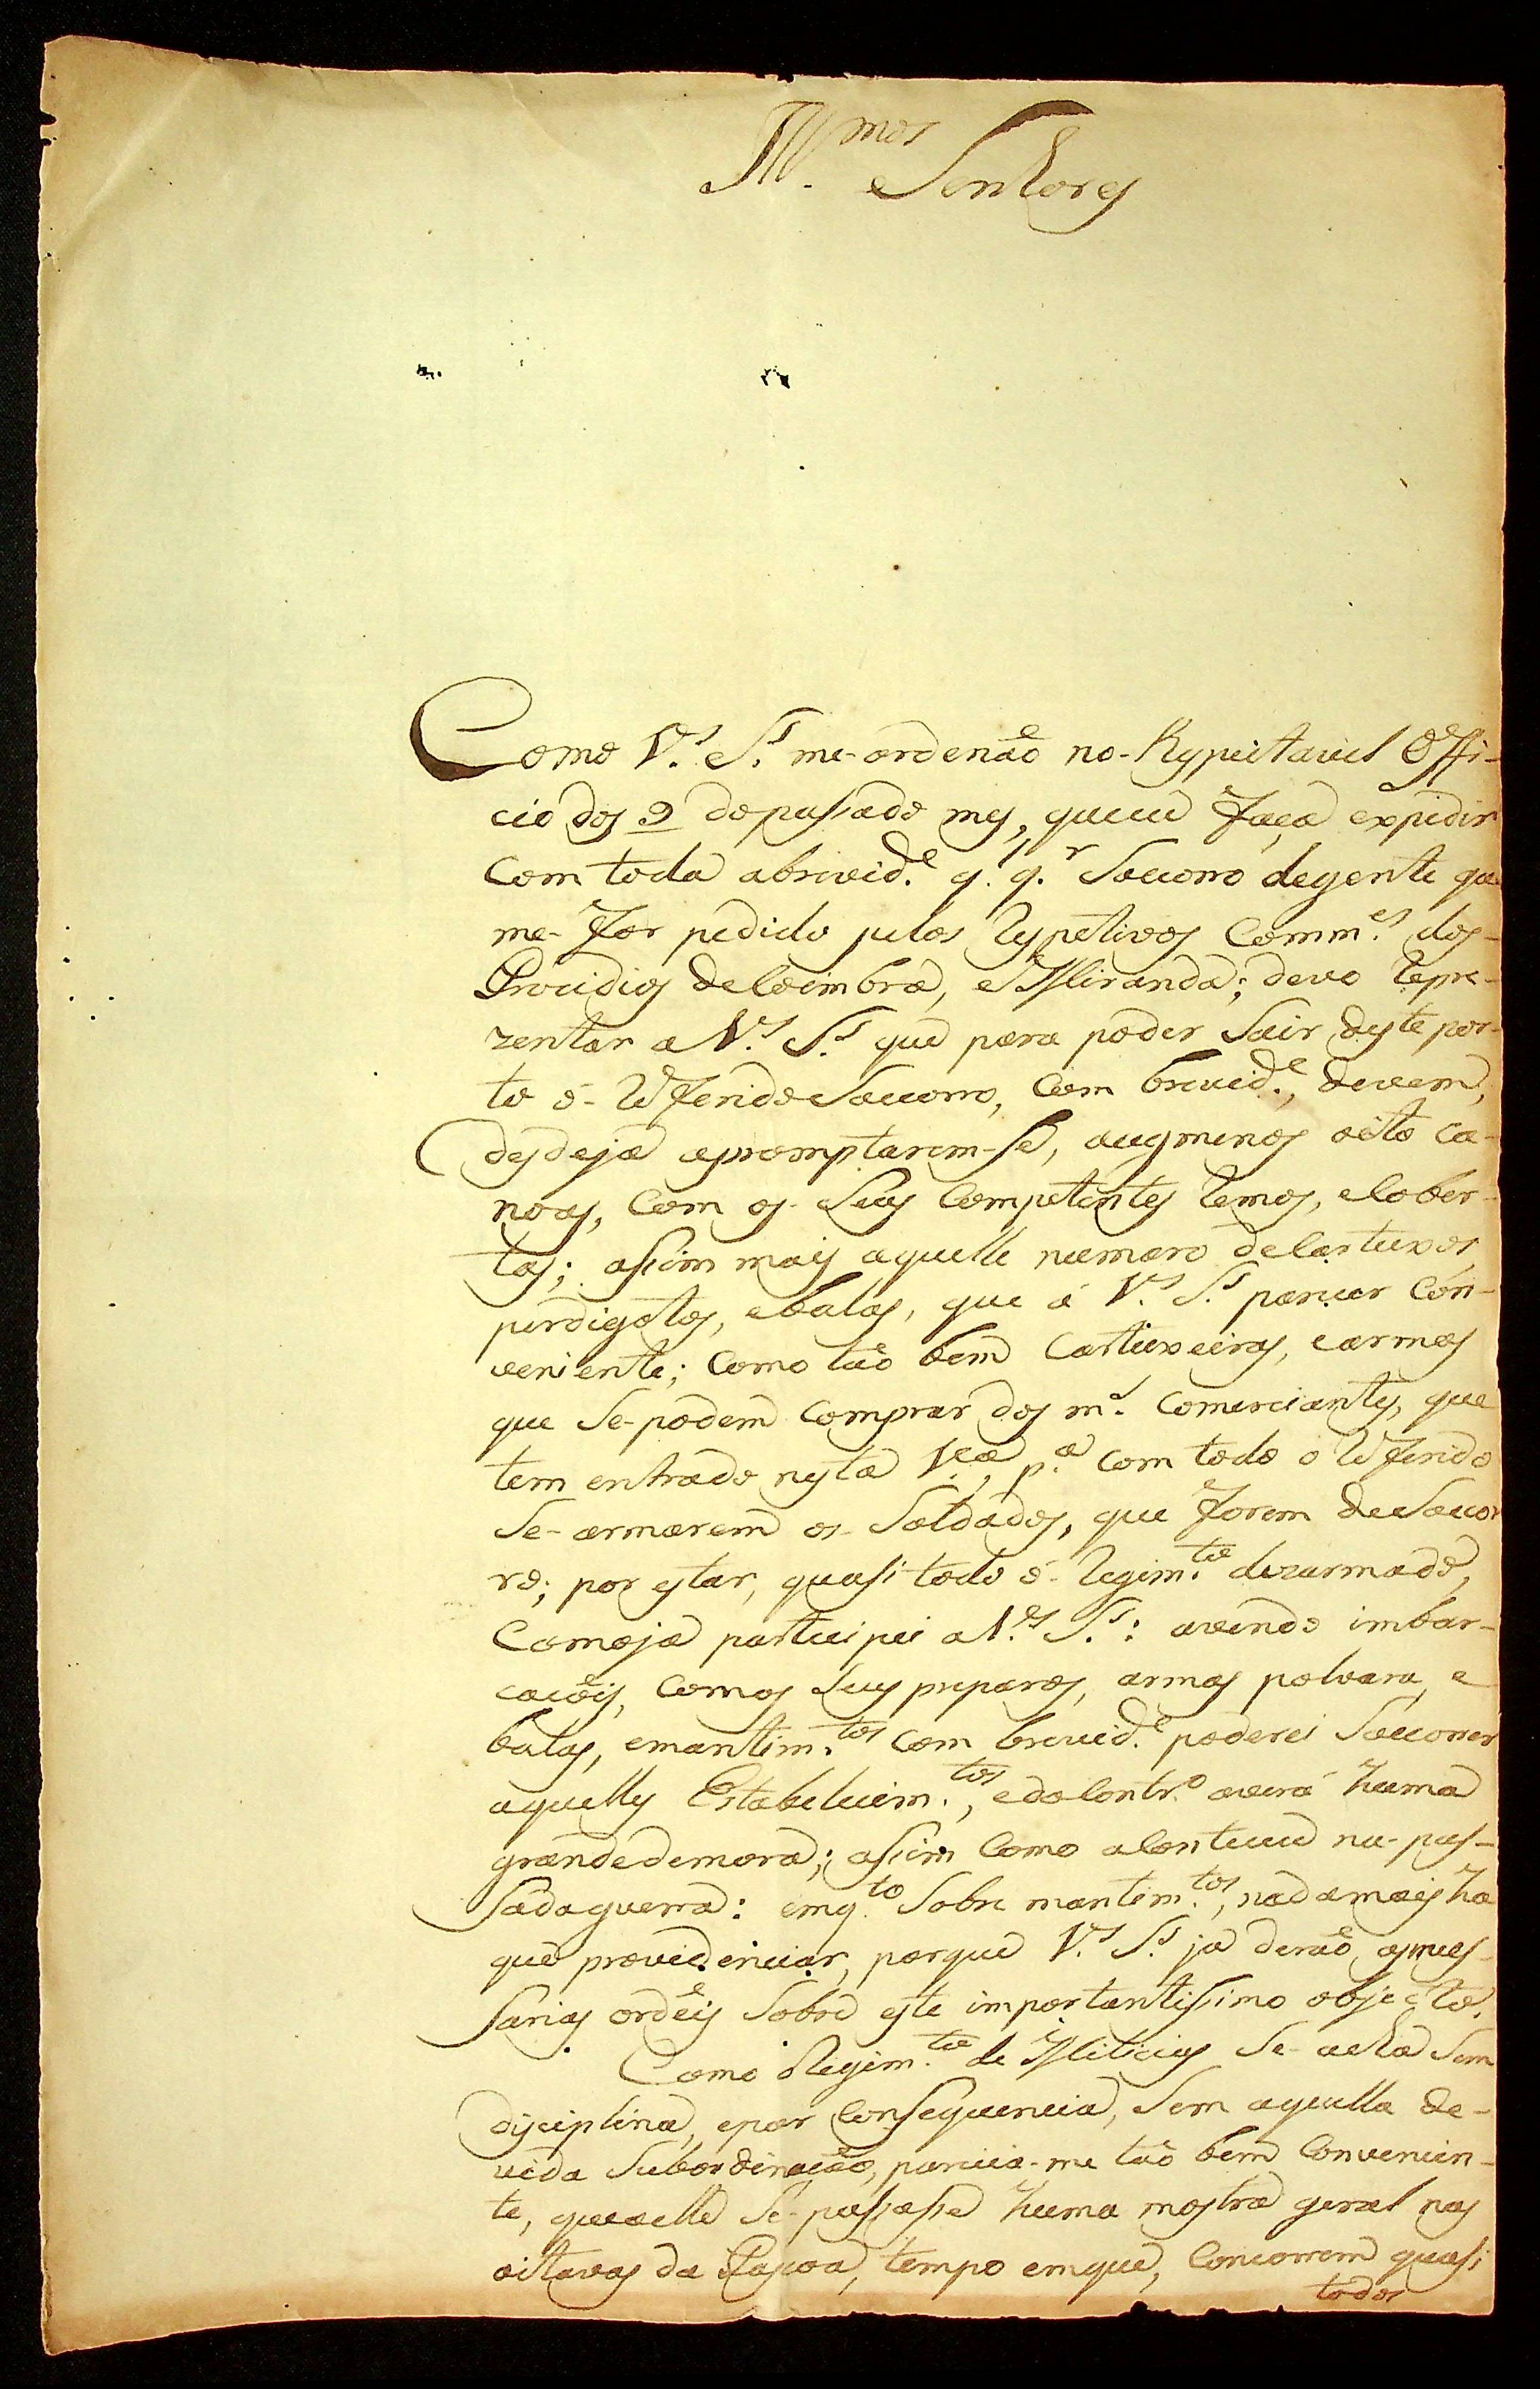 Ill.mos Senhores
Como V.s S.s me-ordenão no-Respeitavel Offi-
cio dos 9 do passado mes, que eu faça expedir
com toda abrevid.e q.q.r Socorro de gente que
me-for pedido pelos respetivos Comm.es dos-
Prezidios de Coimbra, e Miranda; devo repre-
zentar a V.s S.s que para poder Sair deste por-
to o-refferido Socorro, com brevid.e, devem,
desdejá apromptarem-se, aogmenos oito ca-
noas, com os-Seus Competentes remos, e Cober-
tas; assim mais aquelle numero de Cartuxos
perdigotos, e balas, que á V.s S.s parecer Con-
veniente; Como tão bem Cartuxeiras, e armas
que Se-podem Comprar dos m.s Comerciantes, que
tem entrado nesta V.a, p.a com todo o refferido
Se-armarem os-Soldados, que forem de Socor
ro; por estar, quasi todo o-Regim.to dezarmado,
Comojá participei a V.s S.s: avendo imbar-
cacoẽis, Comos Seus preparos, armas polvara, e
balas, emantim.tos com brevid.e poderei Socorrer
aquelles Estabelecim.tos, edo Contr.o averá huma
grandedemora; assim Como aConteceu na-pas-
Sadaguerra: emq.to Sobre mantim.tos, nadamais ha
que providenciar, porque V.s S.s já derão, asneces-
Sarias ordẽis Sobre este importantissimo objecto.
Como oRegim.to de Milicias Se-acha Sem
disciplina, epor Consequencia, Sem aquella de-
vida Subordinação, parecia-me tão bem Convenien-
te, queaelle Se-passasse huma mostra geral nas
oitavas da Pascoa, tempo emque, Concorrem quasi
todos